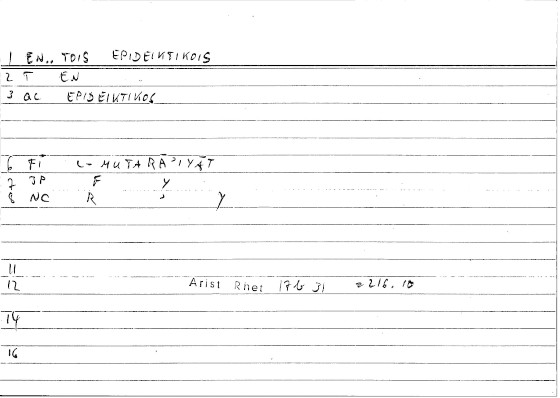 1 EN.. TOIS EPIDEIKTIKOIS
2 T EN
3 ac EPIDEIKTIKOS
6 FĪ L-MUTARĀ'IYĀT
7 3P F Y
8 NC R ' Y
11
12 Arist Rhet 17b 31 = 216.10
14
16